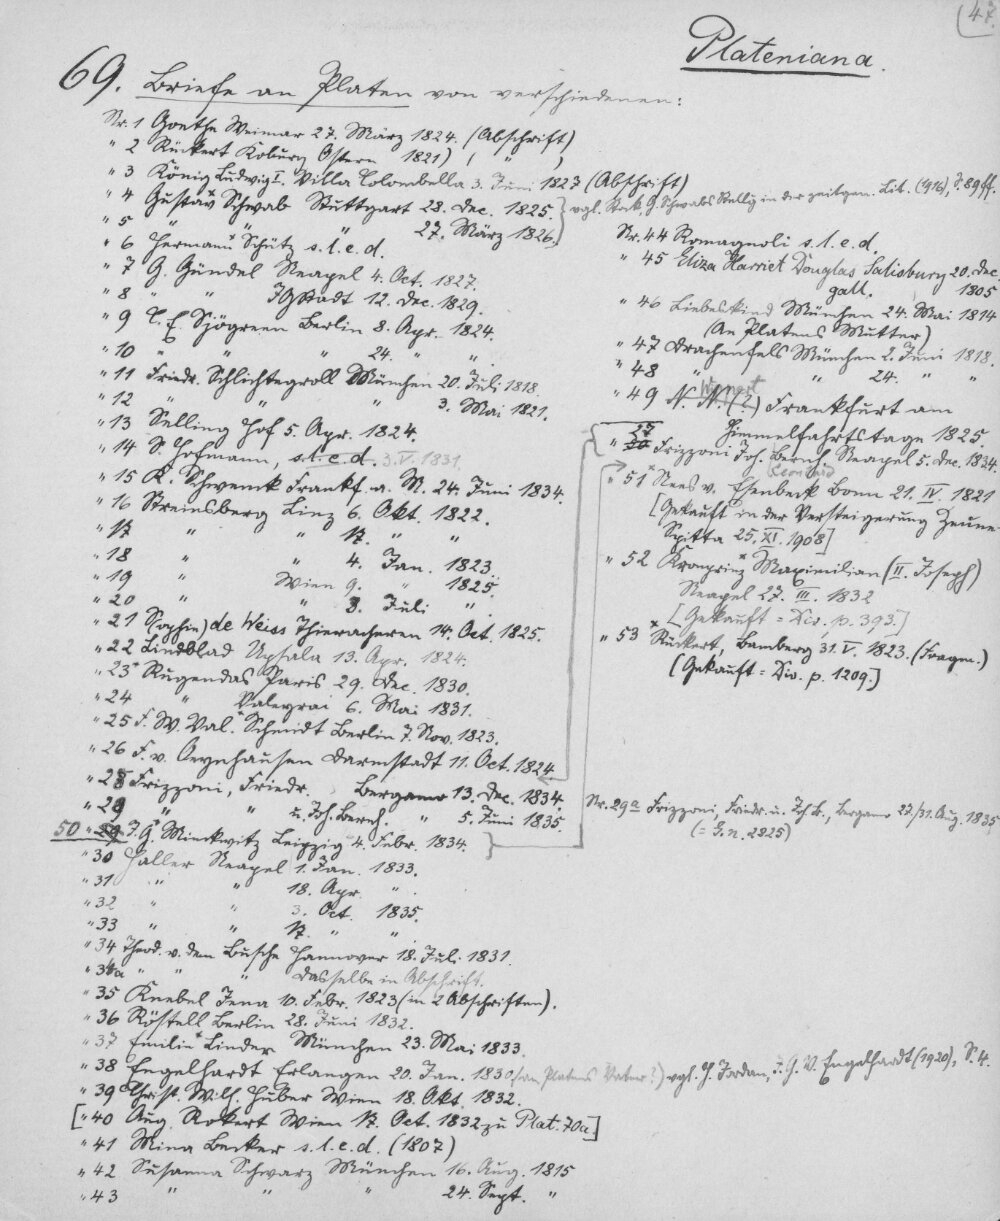 (47.
Plateniana.
69. Briefe an Platen von verschiedenen:
Nr. 1 Goethe Weimar 27. März 1824. (Abschrift)
" 2 Rückert Koburg Ostern 1821) ( " )
" 3 König Ludwig I. Villa Colombella 3. Juni 1827 (Abschrift)
" 4 Gustav Schwab Stuttgart 28. Dec. 1825. } vgl. Stock, G. Schwabs Stellg in der zeitgen. Lit. (1916), S. 89 ff.
" 5 " " " 27. März 1826.
" 6 Hermann Schütz s. l. e. d.
" 7 G. Gündel Neapel 4. Oct. 1827.
" 8 " " 12. Dec. 1829.
" 9 C. E. Sjögreen Berlin 8. Apr. 1824.
" 10 " " " 24. " "
" 11 Friedr. Schlichtegroll München 20. Juli 1818.
" 12 " " " 3. Mai 1821.
" 13 Selling Hof 5. Apr. 1824.
" 14 S. Hofmann, s. l. e. d. 3. V. 1831.
" 15 K. Schwenck Frankf. a. M. 24. Juni 1834.
" 16 Streinsberg Linz 6. Okt. 1822.
" 17 " " 17. " "
" 18 " " 4. Jan. 1823
" 19 " Wien 9. " 1825.
" 20 " " 3. Juli "
" 21 S(ophie) de Weiss Thierachern 14. Oct. 1825.
" 22 Lindblad Upsala 13. Apr. 1824.
" 23 Rugendas Paris 29. Dec. 1830.
" 24 " 6. Mai 1831.
" 25 F. W. Val. Schmidt Berlin 7. Nov. 1823.
" 26 F. v. Oeynhausen Darmstadt 11. Oct. 1824.
" 28 Frizzoni, Friedr. Bergamo 13. Dec. 1834.
" 29 " " u. Joh. Bernh. " 5. Juni 1835.
50 " 29 J. G. Minckwitz Leipzig 4. Febr. 1834. }
" 30 Haller Neapel 1. Jan. 1833.
" 31 " " 18. Apr. "
" 32 " " 3. Oct. 1835.
" 33 " " 17. " "
" 34 Theod. v. dem Busche Hannover 18. Juli 1831.
" 34a " " " dasselbe in Abschrift.
" 35 Knebel Jena 10. Febr. 1823 (in 2 Abschriften).
" 36 Röstell Berlin 28. Juni 1832.
" 37 Emilie Linder München 23. Mai 1833.
" 38 Engelhardt Erlangen 20. Jan. 1830 (an Platens Vater?) vgl. H. Jordan, J. G. V. Engelhardt (1920), S. 4.
" 39 Christ. Wilh. Huber Wien 18. Okt. 1832.
[" 40 Aug. Rokert Wien 17. Oct. 1832 zu Plat. 70a]
" 41 Mina Becker s. l. e. d. (1807)
" 42 Susanna Schwarz München 16. Aug. 1815
" 43 " " " 24. Sept. "
Nr. 44 Romagnoli s. l. e. d.
" 45 Eliza Harriet Douglas Salisbury 20. Dec.
gall. 1805
" 46 Liebeskind München 24. Mai 1814
(An Platens Mutter)
" 47 Drachenfels München 2. Juni 1818.
" 48 " " 24. " "
" 49 N. N. (?) Frankfurt am
Himmelfahrtstage 1825.
27
" 50 Frizzoni Joh. Bernh. Neapel 5. Dec. 1834.
Leonhard
" 51 Nees v. Esenbeck Bonn 21. IV. 1821
[Gekauft in der Versteigerung Zeune-
Spitta 25. XI. 1908]
" 52 Kronprinz Maximilian (II. Joseph)
Neapel 27. III. 1832
[Gekauft = Div. p. 393.]
" 53 Rückert, Bamberg 31. V. 1823. (Fragm.)
(Gekauft = Div. p. 1209.]
Nr. 29a Frizzoni, Friedr. u. Joh. B., Bergamo 22./31. Aug. 1835
(= G. n. 2225)